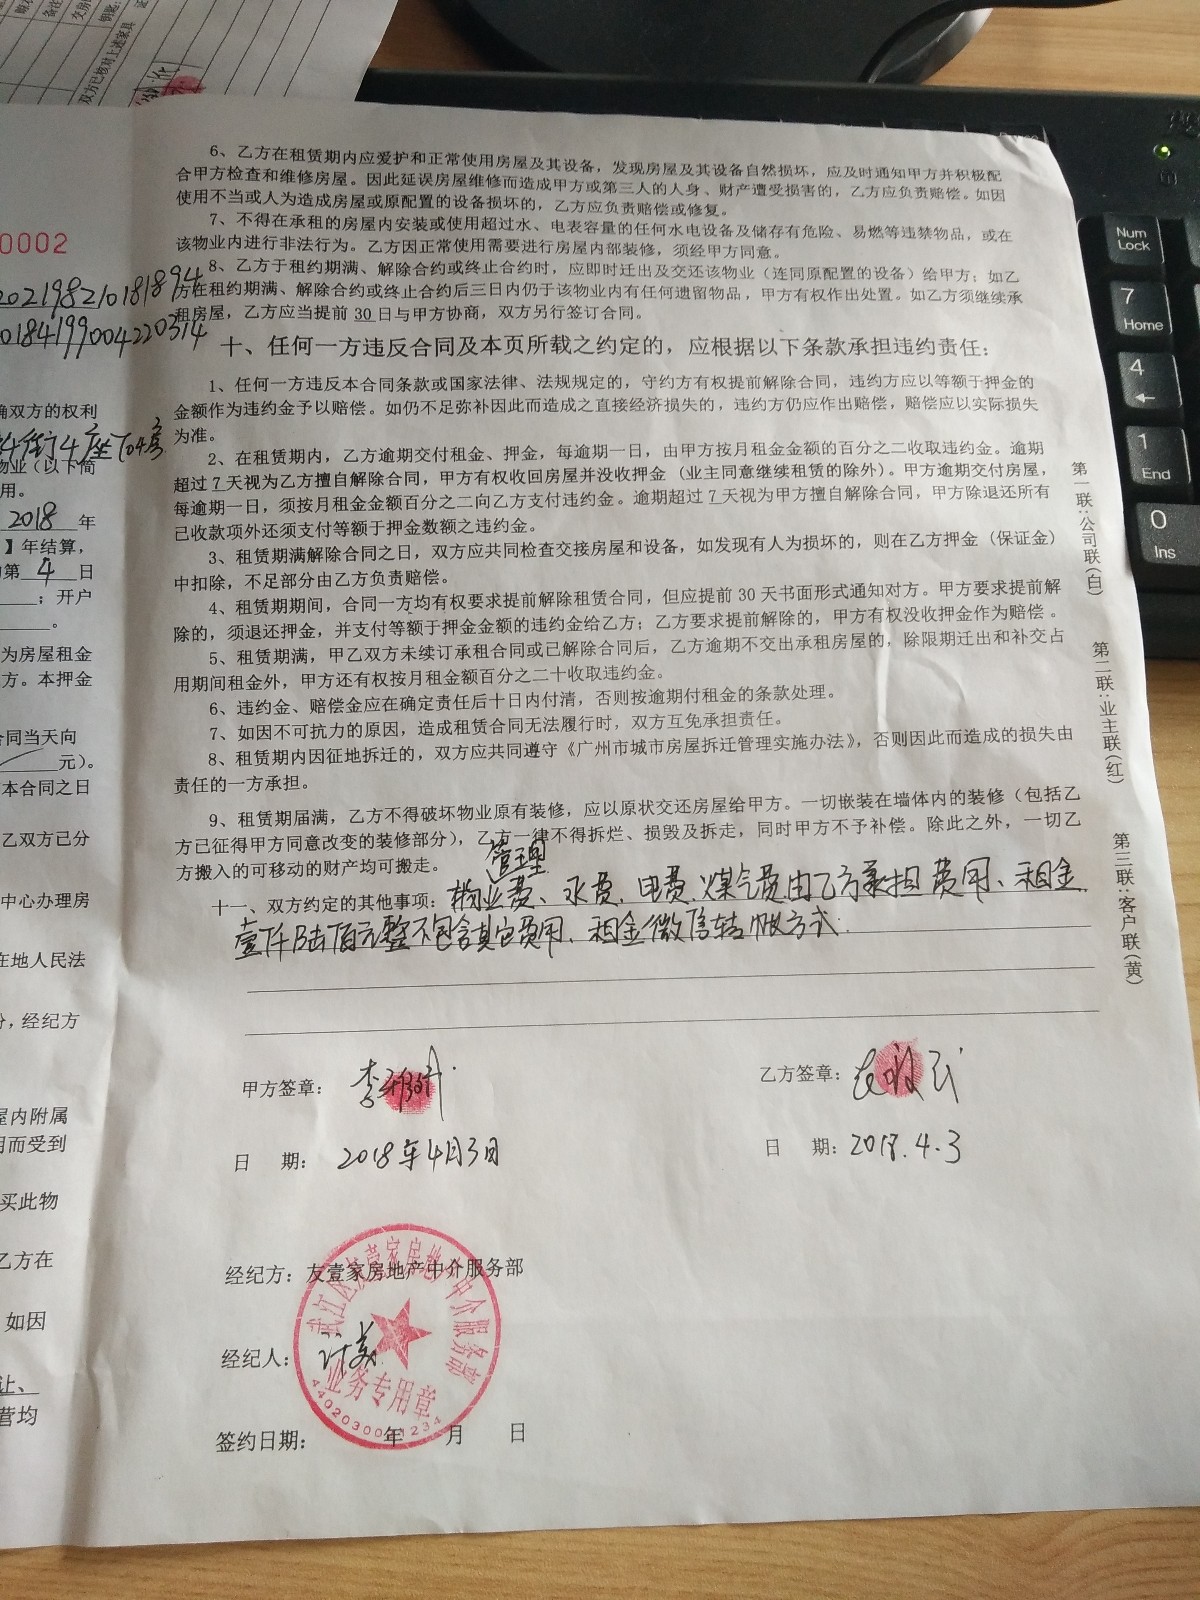 双方已核对上述家具
0002
202198210181894
0184199004220314
确双方的权利
街4座704房
物业（以下简
用。
2018 年
】年结算，
第 4 日
；开户
。
为房屋租金
方。本押金
合同当天向
元）。
本合同之日
乙双方已分
中心办理房
在地人民法
份，经纪方
屋内附属
用而受到
买此物
乙方在
如因
让、
营均
6、乙方在租赁期内应爱护和正常使用房屋及其设备，发现房屋及其设备自然损坏，应及时通知甲方并积极配
合甲方检查和维修房屋。因此延误房屋维修而造成甲方或第三人的人身、财产遭受损害的，乙方应负责赔偿。如因
使用不当或人为造成房屋或原配置的设备损坏的，乙方应负责赔偿或修复。
7、不得在承租的房屋内安装或使用超过水、电表容量的任何水电设备及储存有危险、易燃等违禁物品，或在
该物业内进行非法行为。乙方因正常使用需要进行房屋内部装修，须经甲方同意。
8、乙方于租约期满、解除合约或终止合约时，应即时迁出及交还该物业（连同原配置的设备）给甲方；如乙
方在租约期满、解除合约或终止合约后三日内仍于该物业内有任何遗留物品，甲方有权作出处置。如乙方须继续承
租房屋，乙方应当提前 30 日与甲方协商，双方另行签订合同。
十、任何一方违反合同及本页所载之约定的，应根据以下条款承担违约责任：
1、任何一方违反本合同条款或国家法律、法规规定的，守约方有权提前解除合同，违约方应以等额于押金的
金额作为违约金予以赔偿。如仍不足弥补因此而造成之直接经济损失的，违约方仍应作出赔偿，赔偿应以实际损失
为准。
2、在租赁期内，乙方逾期交付租金、押金，每逾期一日，由甲方按月租金金额的百分之二收取违约金。逾期
超过 7 天视为乙方擅自解除合同，甲方有权收回房屋并没收押金（业主同意继续租赁的除外）。甲方逾期交付房屋，
每逾期一日，须按月租金金额百分之二向乙方支付违约金。逾期超过 7 天视为甲方擅自解除合同，甲方除退还所有
已收款项外还须支付等额于押金数额之违约金。
3、租赁期满解除合同之日，双方应共同检查交接房屋和设备，如发现有人为损坏的，则在乙方押金（保证金）
中扣除，不足部分由乙方负责赔偿。
4、租赁期期间，合同一方均有权要求提前解除租赁合同，但应提前 30 天书面形式通知对方。甲方要求提前解
除的，须退还押金，并支付等额于押金金额的违约金给乙方；乙方要求提前解除的，甲方有权没收押金作为赔偿。
5、租赁期满，甲乙双方未续订承租合同或已解除合同后，乙方逾期不交出承租房屋的，除限期迁出和补交占
用期间租金外，甲方还有权按月租金额百分之二十收取违约金。
6、违约金、赔偿金应在确定责任后十日内付清，否则按逾期付租金的条款处理。
7、如因不可抗力的原因，造成租赁合同无法履行时，双方互免承担责任。
8、租赁期内因征地拆迁的，双方应共同遵守《广州市城市房屋拆迁管理实施办法》，否则因此而造成的损失由
责任的一方承担。
9、租赁期届满，乙方不得破坏物业原有装修，应以原状交还房屋给甲方。一切嵌装在墙体内的装修（包括乙
方已征得甲方同意改变的装修部分），乙方一律不得拆烂、损毁及拆走，同时甲方不予补偿。除此之外，一切乙
方搬入的可移动的财产均可搬走。
管理
十一、双方约定的其他事项：物业费、水费、电费、煤气费由乙方承担费用、租金
壹仟陆佰元整不包含其它费用、租金微信转帐方式.
甲方签章：
乙方签章：
日 期：2018年4月3日
日 期：2018.4.3
经纪方：友壹家房地产中介服务部
武江区友壹家房地产中介服务部
经纪人：
业务专用章
签约日期： 年 月 日
第一联：公司联（白）
第二联：业主联（红）
第三联：客户联（黄）
Num
Lock
7
Home
4
←
1
End
0
Ins